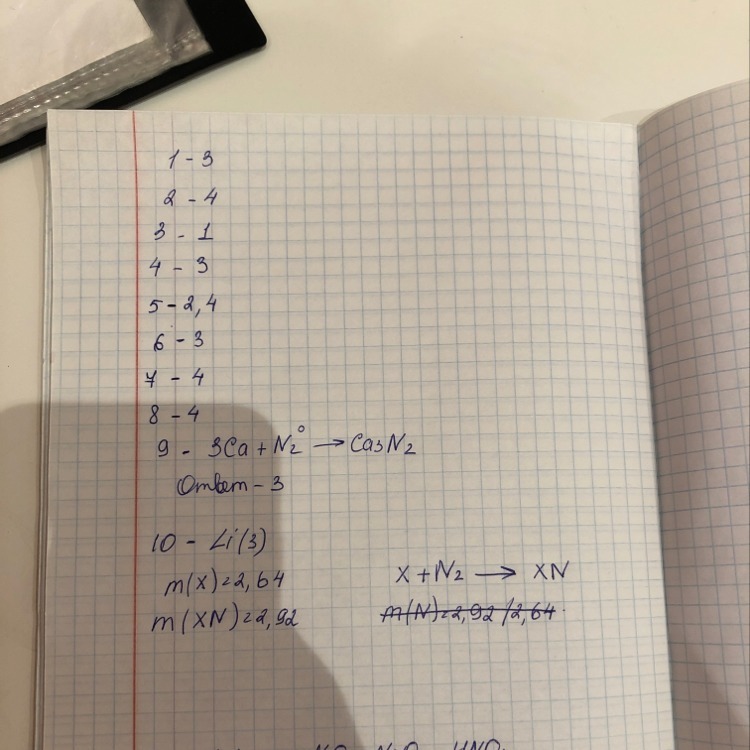 1 - 3
2 - 4
3 - 1
4 - 3
5 - 2,4
6 - 3
7 - 4
8 - 4
9 - 3Ca + N₂⁰ → Ca₃N₂
Ответ - 3
10 - Li(3)
m(X)=2,64
X + N₂ → XN
m(XN)=2,92
m(N)=2,92/2,64